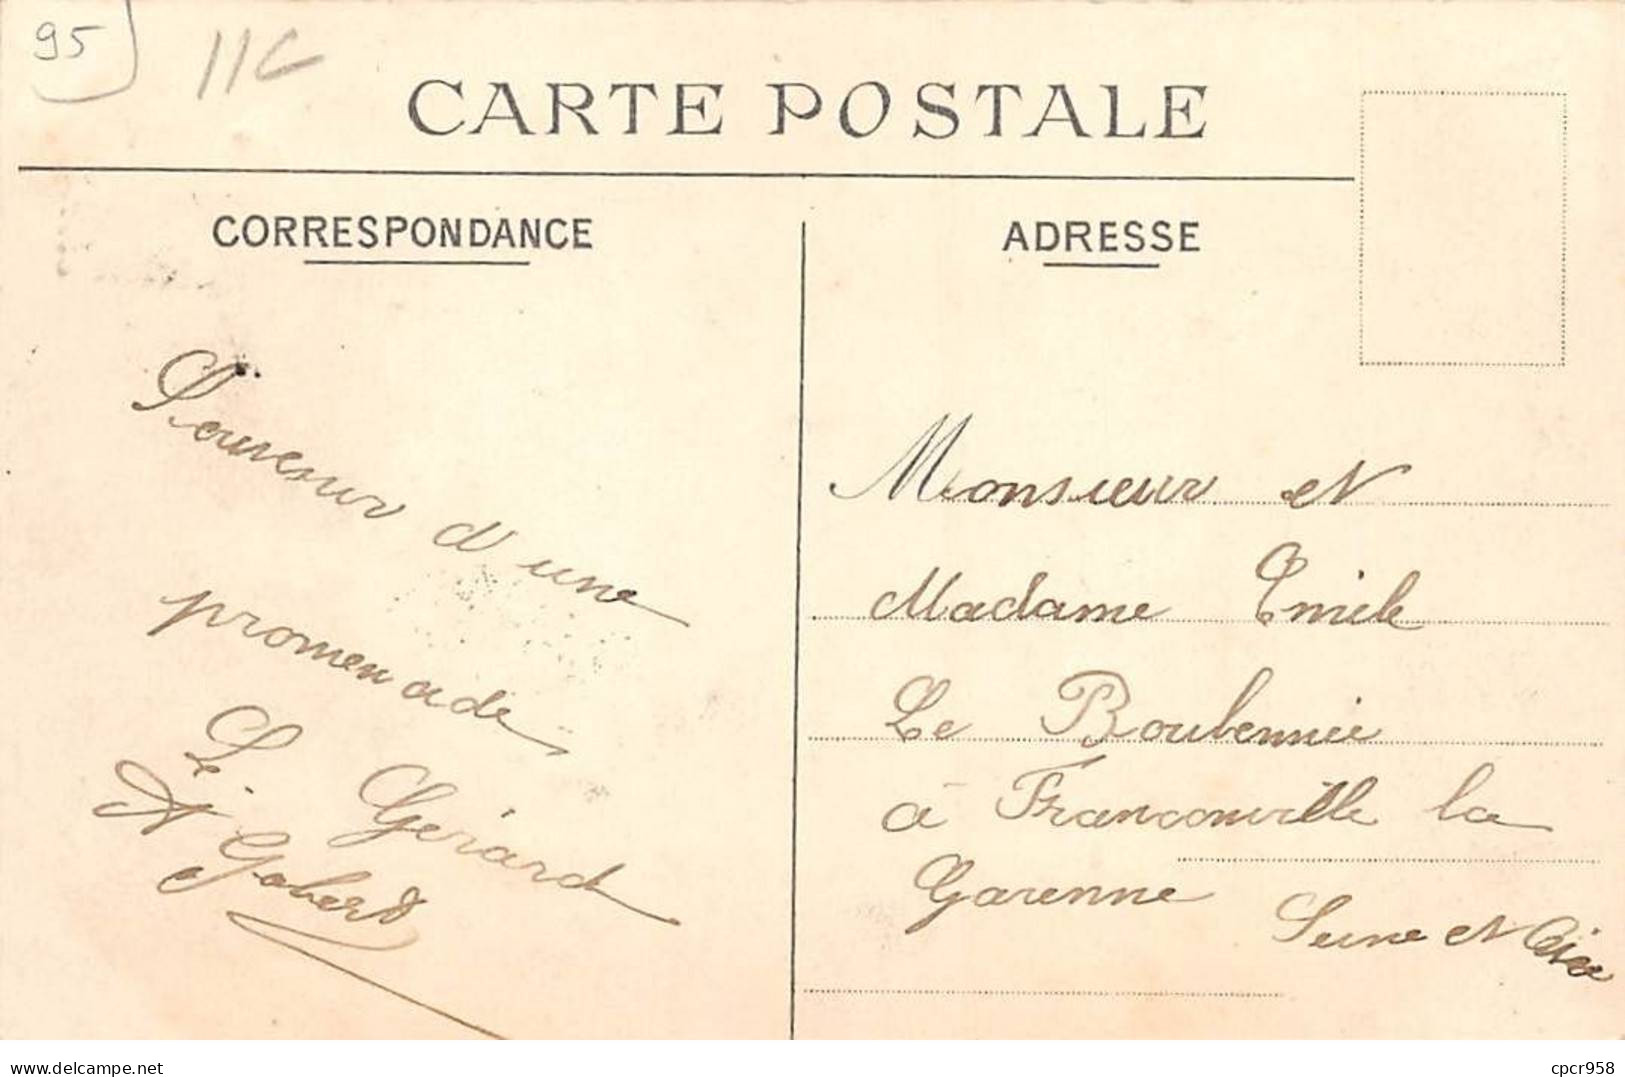 95
11C
CARTE POSTALE
CORRESPONDANCE
ADRESSE
Souvenir d'une
promenade
Le Gérard
A Gobert
Monsieur et
Madame Emile
Le
à Franconville la
Garenne
Seine et Oise
www.delcampe.net
cpcr958